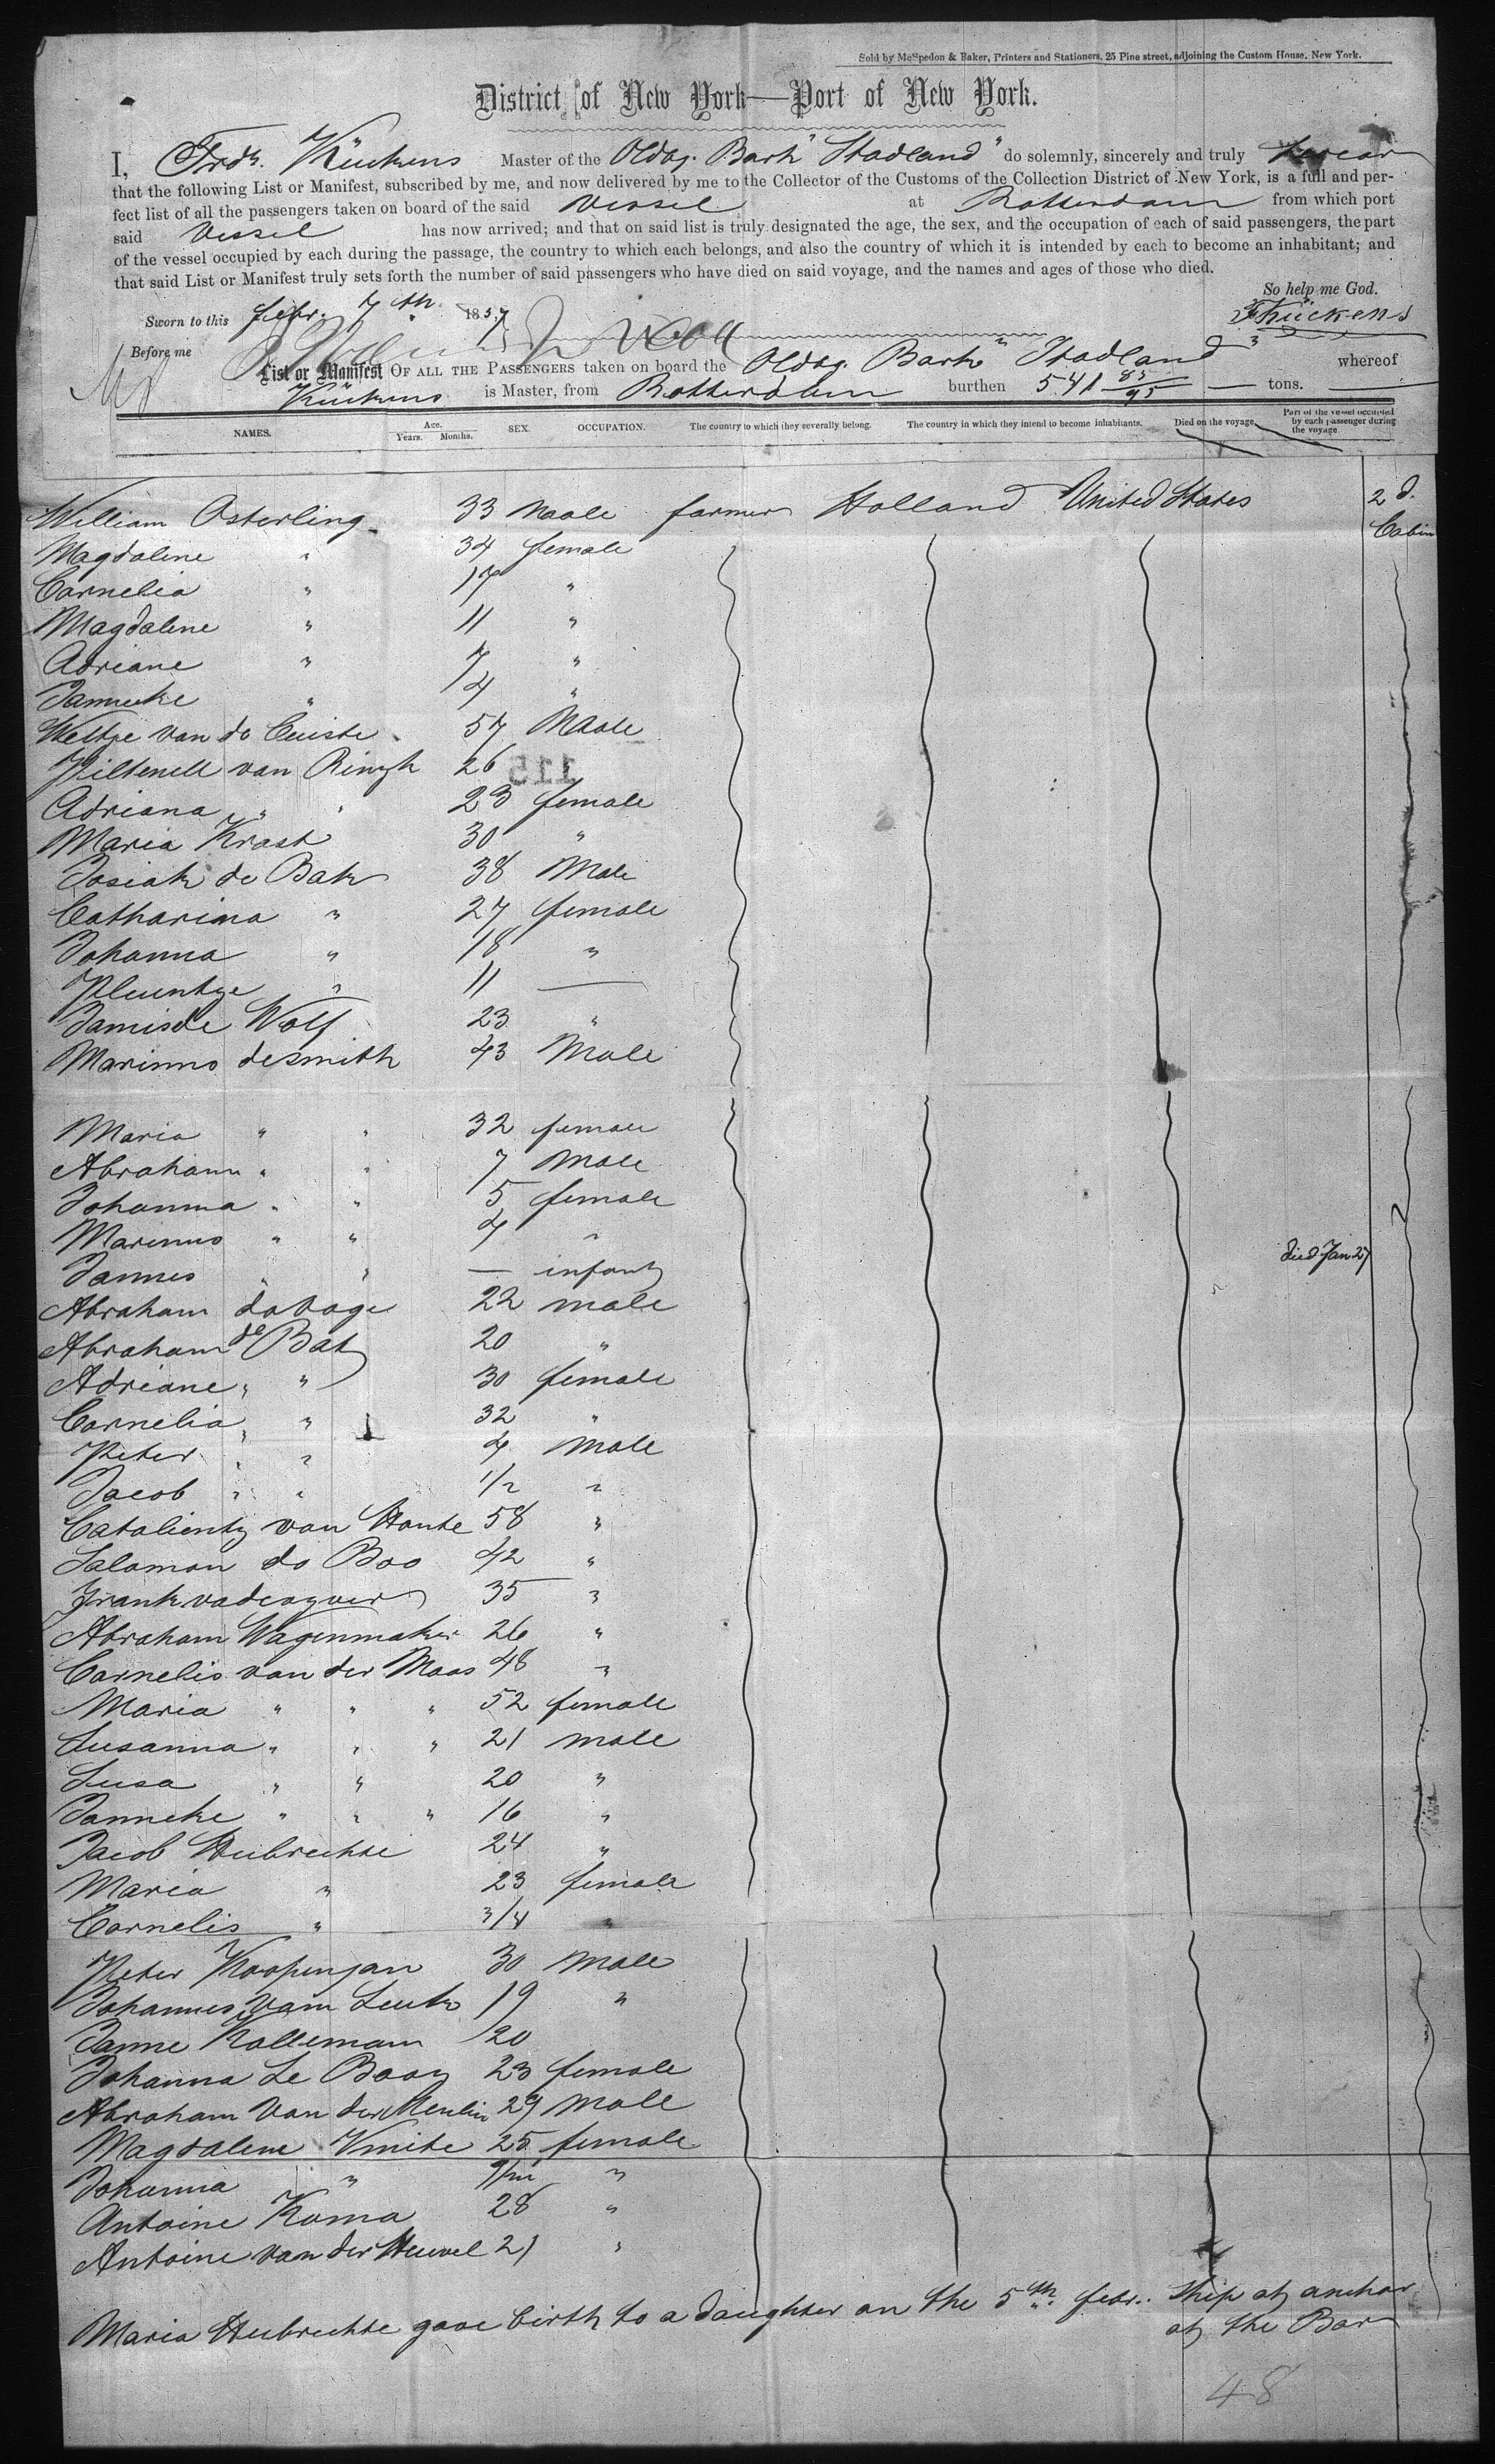 Sold by McSpedon & Baker, Printers and Stationers, 25 Pine street, adjoining the Custom House, New York.
District of New York—Port of New York.
I, Fredk. Kückens Master of the Oldbg. Bark "Stadland" do solemnly, sincerely and truly swear
that the following List or Manifest, subscribed by me, and now delivered by me to the Collector of the Customs of the Collection District of New York, is a full and per-
fect list of all the passengers taken on board of the said Vessel at Rotterdam from which port
said Vessel has now arrived; and that on said list is truly designated the age, the sex, and the occupation of each of said passengers, the part
of the vessel occupied by each during the passage, the country to which each belongs, and also the country of which it is intended by each to become an inhabitant; and
that said List or Manifest truly sets forth the number of said passengers who have died on said voyage, and the names and ages of those who died.
So help me God.
Sworn to this febr. 7th 1857 FKückens
Before me
List or Manifest OF ALL THE PASSENGERS taken on board the Oldbg. Bark "Stadland" whereof
Kückens is Master, from Rotterdam burthen 541 85/95 tons.
NAMES. Age. Years. Months. SEX. OCCUPATION. The country to which they severally belong. The country in which they intend to become inhabitants. Died on the voyage. Part of the vessel occupied by each passenger during the voyage
William Osterling 33 Maale farmer Holland United States 2d. Cabin
Magdalene " 34 female
Cornelia " 17 "
Magdalene " 11 "
Adriane " 7 "
Jannecke " 4 "
Weltje van de Cuiste 57 Maale
van Ringh 26 "
115
Adriana " " 23 female
Maria Krast 30 "
Josiah de Bak 38 Male
Catharina " 27 female
Johanna " 18 "
Pluuntge " 11 —
Jamisde Wolf 23 "
Marinno desmith 43 Male
Maria " " 32 female
Abraham " " 7 Male
Johanna " " 5 female
Marinus " " 4 "
Jannes " " — infant died Jan 27
Abraham 22 male
Abraham de Bak 20 "
Adriane " " 30 female
Cornelia " " 32 "
Peter " " 4 Male
Jacob " " 1/2 "
Catalienty van Houte 58 "
Salomon do Boo 42 "
Frank 35 "
Abraham Wagenmaker 26 "
Cornelis van der Maas 48 "
Maria " " " 52 female
Susanna " " " 21 male
Susa " " 20 "
Janneke " " " 16 "
Jacob Huibrechte 24 "
Maria " 23 female
Cornelis " 3/4 "
Peter Koopenjan 30 Male
Johannes vam Leuk 19 "
Janne Kolleman 20
Johanna Le Booy 23 female
Abraham Van der Meulin 29 Male
Magdalene Vmite 25 female
Johanna " 9/m "
Antoine Koma 28 "
Antoine van der Heuvel 21 "
Maria Huibrechte gave birth to a daughter on the 5th febr. Ship at anchor
at the Bar
48